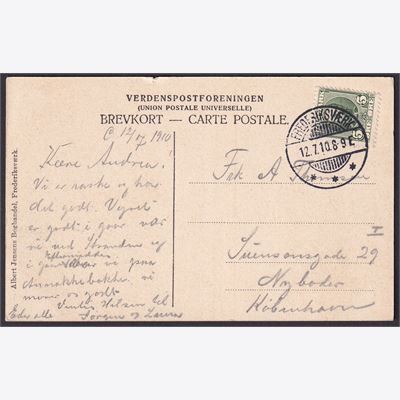 VERDENSPOSTFORENINGEN
(UNION POSTALE UNIVERSELLE)
BREVKORT — CARTE POSTALE.
C 12/7 1910
Kære Andrea!
Vi er raske og har
det godt. Vejret
er godt i gaar var
vi ved Stranden og
i Eftermiddag
vi
morer os godt
Hilsen til
Eder alle Jørgen og Laura
Albert Jensens Boghandel, Frederiksværk.
FREDERIKSVÆRK
12.7.10.8-9E.
5 5
Frk A
I
Suensonsgade 29
Nyboder
København